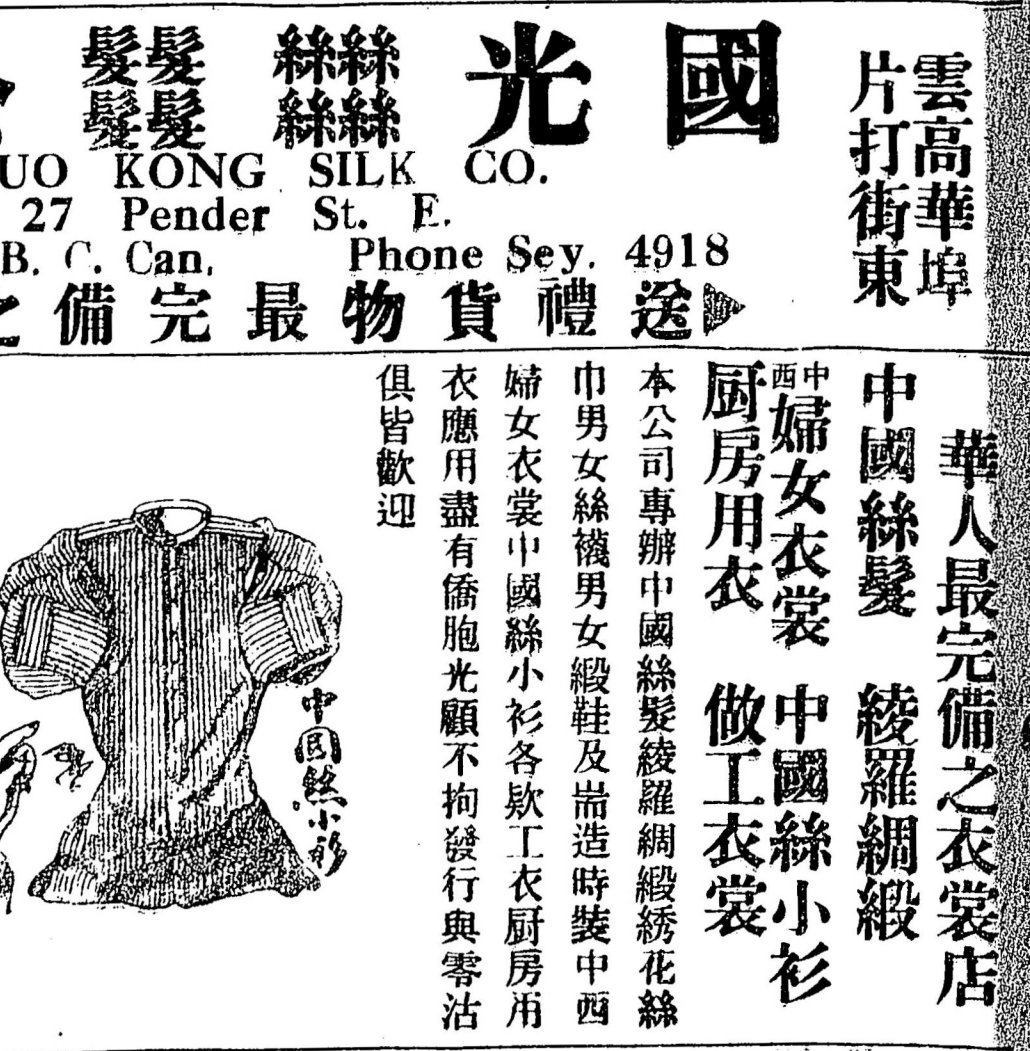 雲高華埠
片打街東
國光絲絲絲絲髮髮髮髮
UO KONG SILK CO.
27 Pender St. E.
B. C. Can. Phone Sey. 4918
送禮貨物最完備之
華人最完備之衣裳店
中國絲髮 綾羅綢緞
中西婦女衣裳 中國絲小衫
厨房用衣 做工衣裳
本公司專辦中國絲髮綾羅綢緞綉花絲
巾男女絲襪男女緞鞋及耑造時裝中西
婦女衣裳中國絲小衫各欵工衣厨房用
衣應用盡有僑胞光顧不拘發行與零沽
俱皆歡迎
中國絲小衫